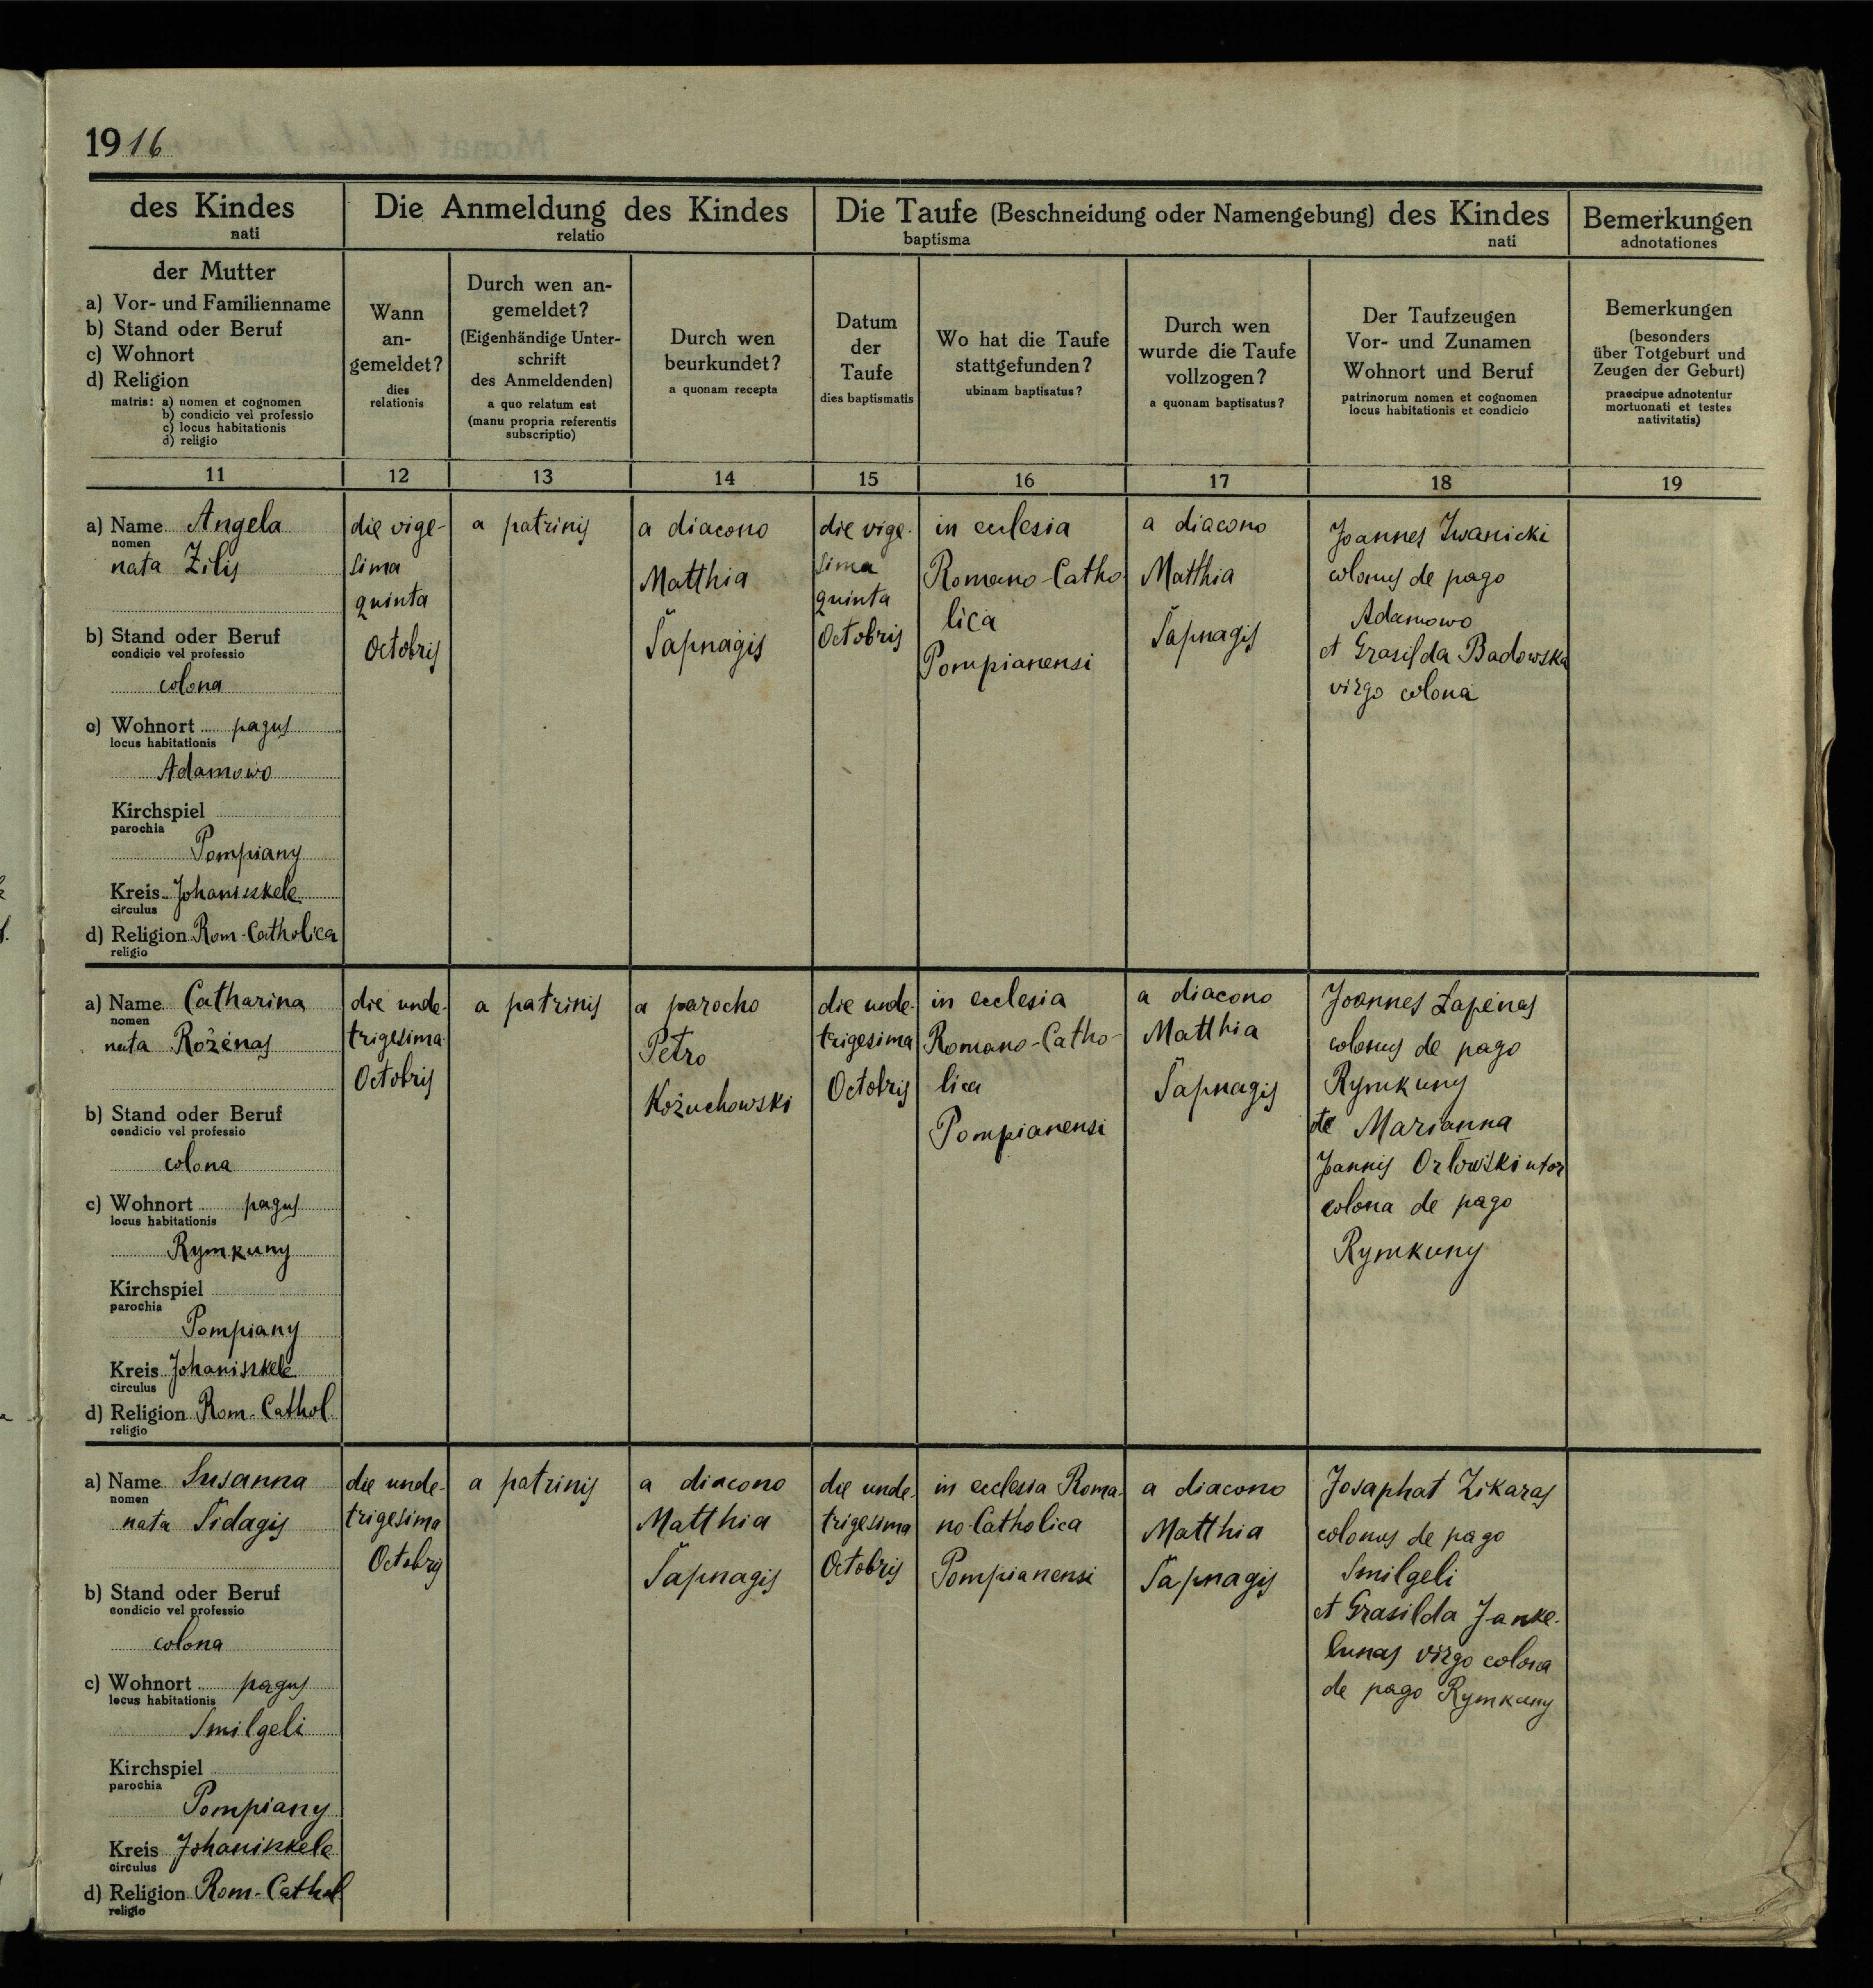 1916
des Kindes
nati
Die Anmeldung des Kindes
relatio
Die Taufe (Beschneidung oder Namengebung) des Kindes
baptisma nati
Bemerkungen
adnotationes
der Mutter
a) Vor- und Familienname
b) Stand oder Beruf
c) Wohnort
d) Religion
matris: a) nomen et cognomen
b) condicio vel professio
c) locus habitationis
d) religio
Wann
an-
gemeldet?
dies
relationis
Durch wen an-
gemeldet?
(Eigenhändige Unter-
schrift
des Anmeldenden)
a quo relatum est
(manu propria referentis
subscriptio)
Durch wen
beurkundet?
a quonam recepta
Datum
der
Taufe
dies baptismatis
Wo hat die Taufe
stattgefunden?
ubinam baptisatus?
Durch wen
wurde die Taufe
vollzogen?
a quonam baptisatus?
Der Taufzeugen
Vor- und Zunamen
Wohnort und Beruf
patrinorum nomen et cognomen
locus habitationis et condicio
Bemerkungen
(besonders
über Totgeburt und
Zeugen der Geburt)
praecipue adnotentur
mortuonati et testes
nativitatis)
11 12 13 14 15 16 17 18 19
a) Name Angela
nomen
nata Žilis
b) Stand oder Beruf
condicio vel professio
colona
c) Wohnort pagus
locus habitationis
Adamowo
Kirchspiel
parochia
Pompiany
Kreis Johaniszkele
circulus
d) Religion Rom-Catholica
religio
die vige-
sima
quinta
Octobris
a patrinis
a diacono
Matthia
Šapnagis
die vige-
sima
quinta
Octobris
in eclesia
Romano-Catho
lica
Pompianensi
a diacono
Matthia
Šapnagis
Joannes Iwanicki
colonus de pago
Adamowo
et Grasilda Badowska
virgo colona
a) Name Catharina
nomen
nata Rožėnas
b) Stand oder Beruf
condicio vel professio
colona
c) Wohnort pagus
locus habitationis
Rymkuny
Kirchspiel
parochia
Pompiany
Kreis Johaniszkele
circulus
d) Religion Rom-Cathol.
religio
die unde-
trigesima
Octobris
a patrinis
a parocho
Petro
Kożuchowski
die unde-
trigesima
Octobris
in ecclesia
Romano-Catho-
lica
Pompianensi
a diacono
Matthia
Šapnagis
Joannes Łapėnas
colonus de pago
Rymkuny
Marianna
Joannis Orłowski uxor
colona de pago
Rymkuny
a) Name Susanna
nomen
nata Šidagis
b) Stand oder Beruf
condicio vel professio
colona
c) Wohnort pagus
locus habitationis
Smilgeli
Kirchspiel
parochia
Pompiany
Kreis Johaniszkele
circulus
d) Religion Rom-Cathol
religio
die unde-
trigesima
Octobris
a patrinis
a diacono
Matthia
Šapnagis
die unde-
trigesima
Octobris
in ecclesia Roma-
no-Catholica
Pompianensi
a diacono
Matthia
Šapnagis
Josaphat Zikaras
colonus de pago
Smilgeli
et Grasilda Janke-
lunas virgo colona
de pago Rymkuny